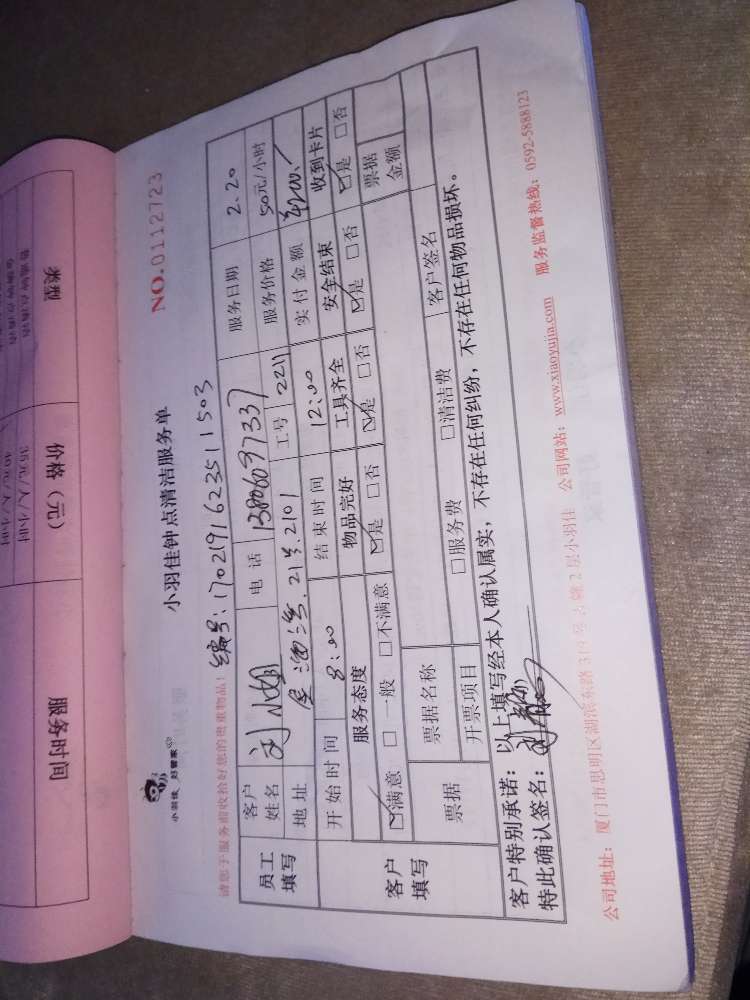 小羽佳钟点清洁服务单
NO.0112723
小羽佳 好管家
请您于服务前收拾好您的贵重物品!
编号:170219162351 1503
员工填写
客户姓名 刘小姐 电话 13806097337 服务日期 2.20
地址 21号.2101 工号 2211 服务价格 50元/小时
开始时间 8:00 结束时间 12:00 实付金额 ¥200.
客户填写
服务态度 物品完好 工具齐全 安全结束 收到卡片
☑满意 □一般 □不满意 ☑是 □否 ☑是 □否 ☑是 □否 ☑是 □否
票据 票据名称 客户签名 票据金额
开票项目 □服务费 □清洁费
客户特别承诺:以上填写经本人确认属实,不存在任何纠纷,不存在任何物品损坏。
特此确认签名:
公司地址:厦门市思明区湖滨东路319号 2层小羽佳 公司网站:www.xiaoyujia.com 服务监督热线:0592-5888123
类型 价格(元) 服务时间
35元/人/小时
40元/人/小时